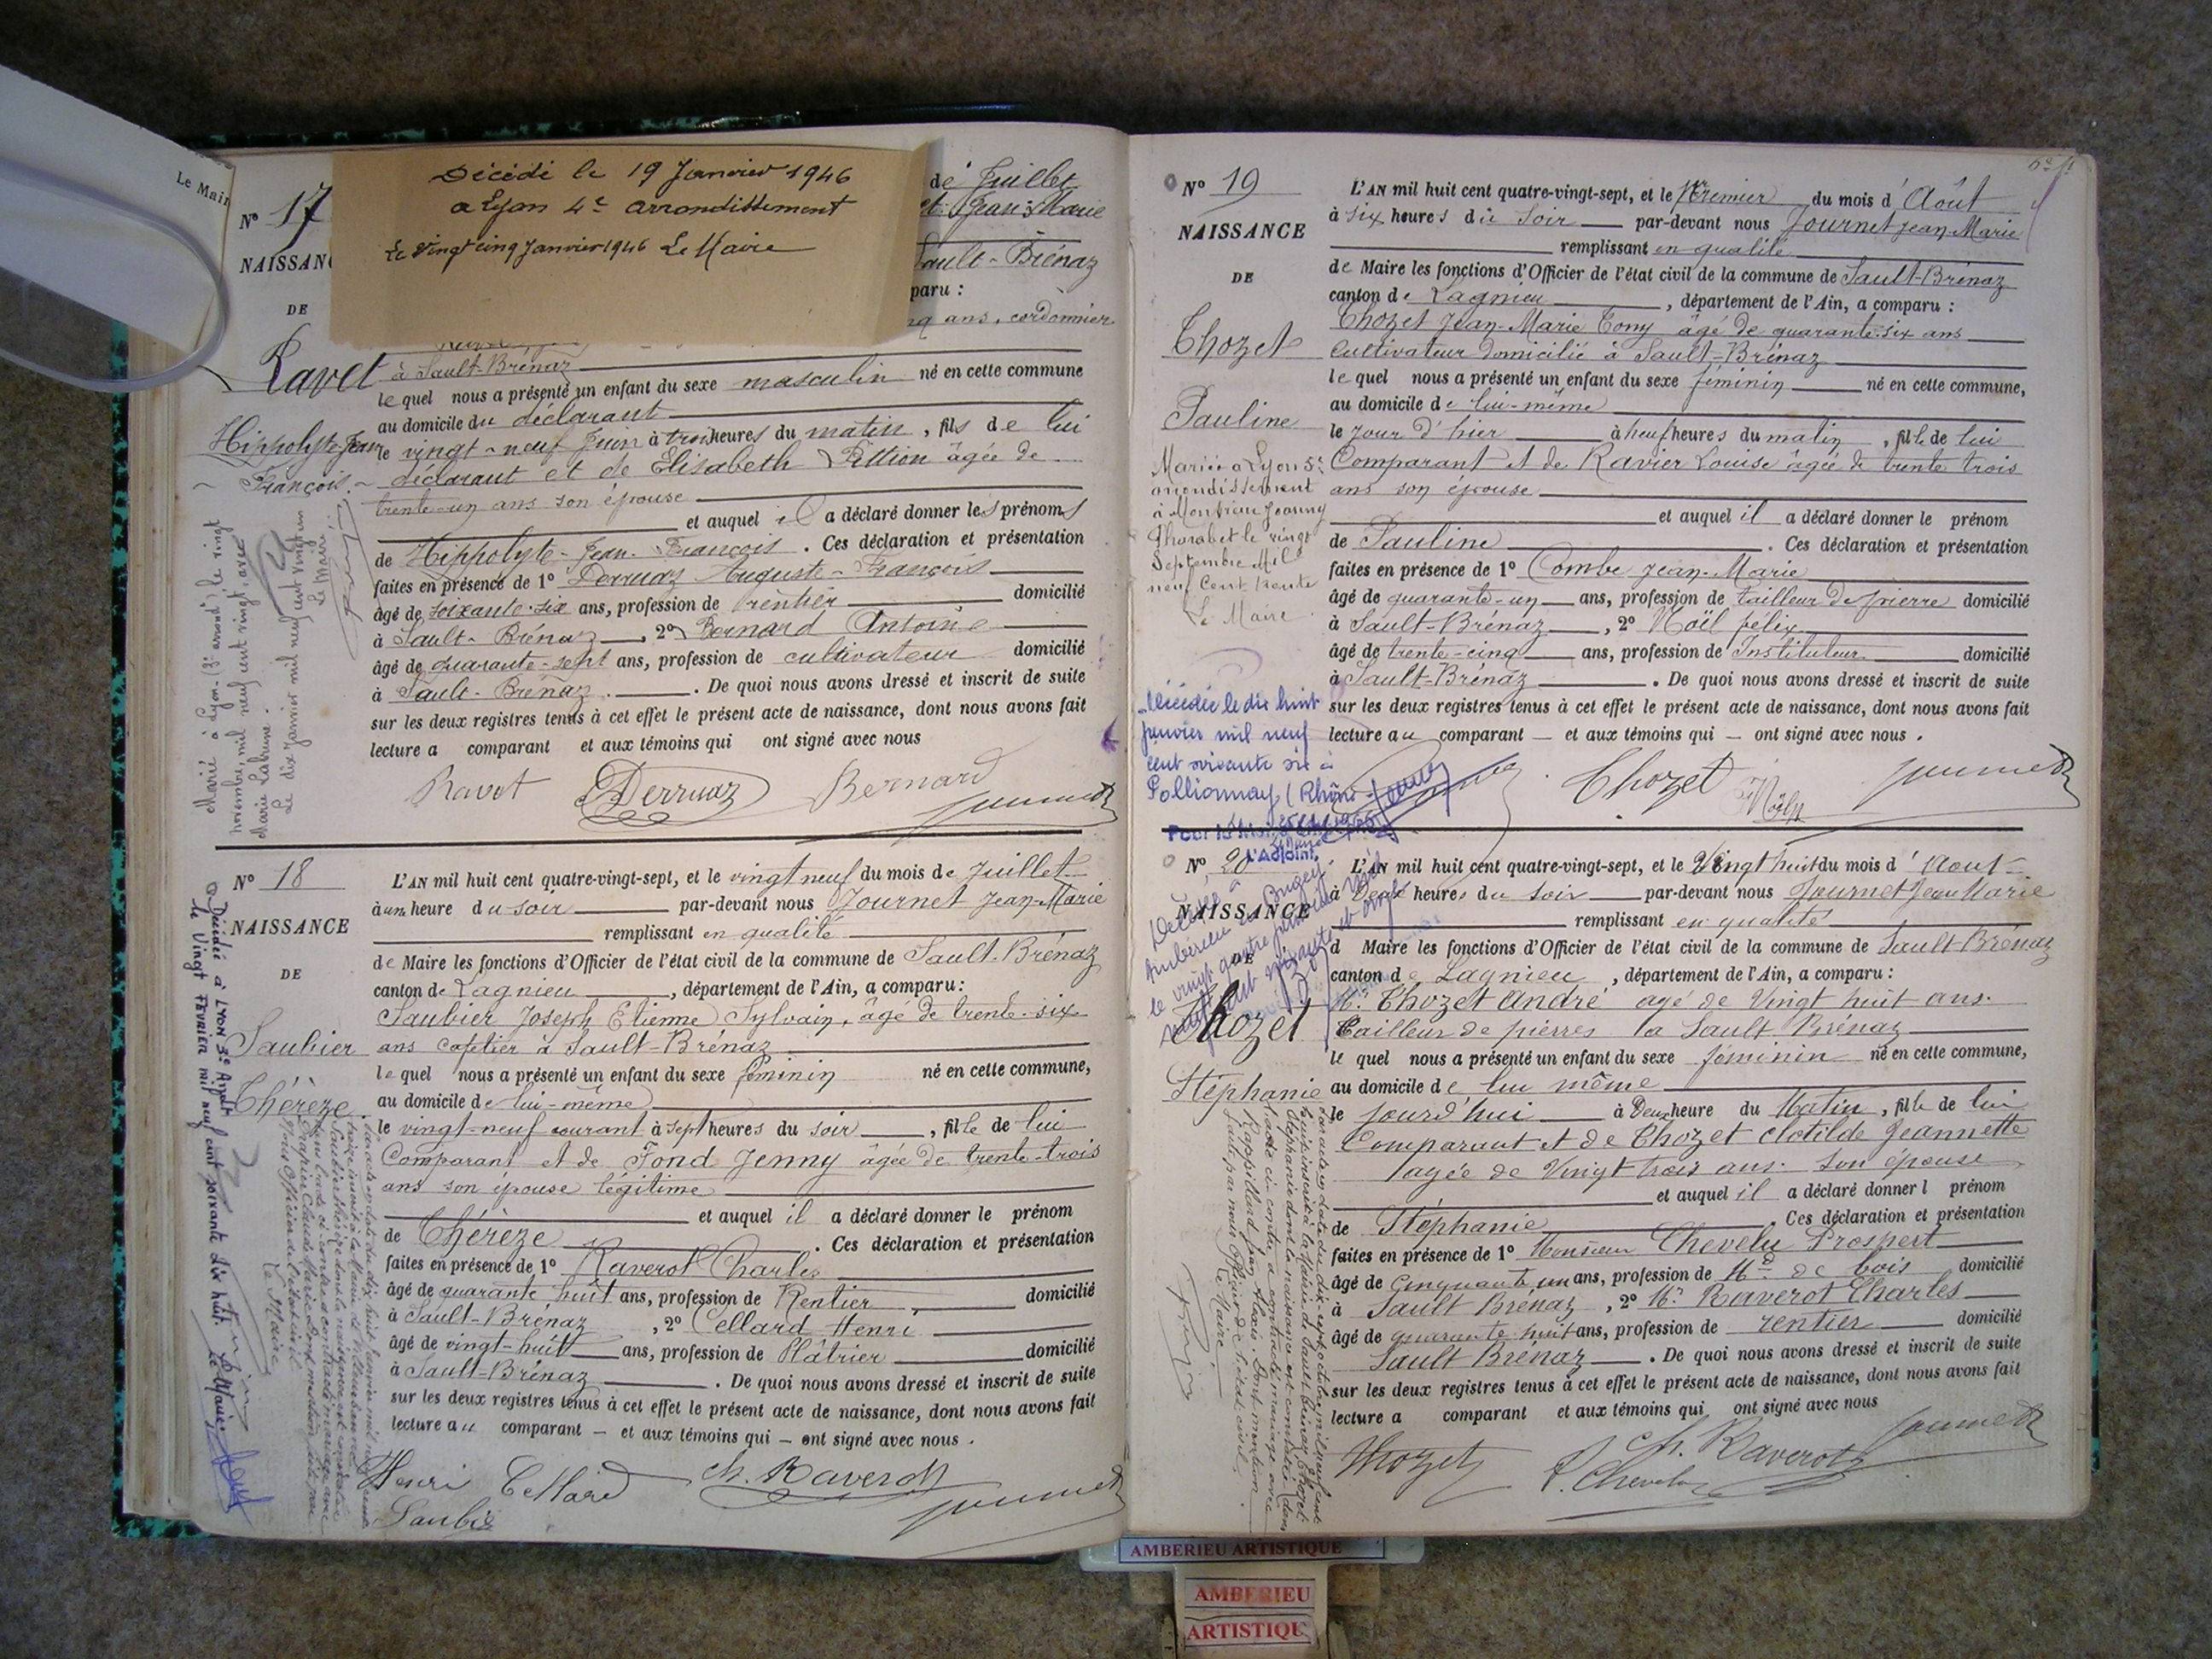 Le Mair
Décédé le 19 Janvier 1946
a Lyon 4e arrondissement
Le vingt cinq Janvier 1946 Le Maire
N° 17
NAISSAN
DE
Ravet
Hippolyte-Jean
François
de Juillet
et Jean-Marie
Sault-Brénaz
paru :
nq ans, cordonnier
à Sault-Brénaz
le quel nous a présenté un enfant du sexe masculin né en cette commune
au domicile du déclarant
le vingt-neuf Juin à trois heures du matin, fils de lui
déclarant et de Elisabeth Pittion âgée de
trente-un ans son épouse
et auquel il a déclaré donner les prénoms
de Hippolyte-Jean-François. Ces déclaration et présentation
faites en présence de 1° Derruaz Auguste-François
âgé de soixante-six ans, profession de rentier domicilié
à Sault-Brénaz, 2° Bernard Antoine
âgé de quarante-sept ans, profession de cultivateur domicilié
à Sault-Brénaz. De quoi nous avons dressé et inscrit de suite
sur les deux registres tenus à cet effet le présent acte de naissance, dont nous avons fait
lecture a comparant et aux témoins qui ont signé avec nous
Ravet Derruaz Bernard
Journet
Marié à Lyon (3e arrondt) le vingt
novembre, mil neuf cent vingt, avec
Marie Labune.
Le dix janvier mil neuf cent vingt un
Le Maire
N° 18
NAISSANCE
DE
Saubier
Thérèze
L'AN mil huit cent quatre-vingt-sept, et le vingt neuf du mois de Juillet
à une heure du soir par-devant nous Journet Jean-Marie
remplissant en qualité
de Maire les fonctions d'Officier de l'état civil de la commune de Sault-Brénaz
canton de Lagnieu, département de l'Ain, a comparu :
Saubier Joseph Etienne Sylvain, âgé de trente-six
ans cafetier à Sault-Brénaz
le quel nous a présenté un enfant du sexe féminin né en cette commune,
au domicile de lui-même
le vingt-neuf courant à sept heures du soir, fille de lui
Comparant et de Fond Jenny âgée de trente-trois
ans son épouse légitime
et auquel il a déclaré donner le prénom
de Thérèze. Ces déclaration et présentation
faites en présence de 1° Raverot Charles
âgé de quarante huit ans, profession de Rentier domicilié
à Sault-Brénaz, 2° Cellard Henri
âgé de vingt-huit ans, profession de Plâtrier domicilié
à Sault-Brénaz. De quoi nous avons dressé et inscrit de suite
sur les deux registres tenus à cet effet le présent acte de naissance, dont nous avons fait
lecture au comparant – et aux témoins qui – ont signé avec nous.
Henri Cellard Ch. Raverot
Saubier Journet
Décédée à LYON 3e Arrdt
le Vingt FÉVRIER mil neuf cent soixante dix huit. Le Maire
N° 19
NAISSANCE
DE
Thozet
Pauline
Mariée à Lyon 5e
arrondissement
à Monsieur Joanny
Thorabet le vingt
Septembre Mil
neuf Cent trente
Le Maire
Décédée le dix huit
janvier mil neuf
cent soixante six à
Pollionnay (Rhône)
L'Adjoint
L'AN mil huit cent quatre-vingt-sept, et le Premier du mois d'Août
à six heures du soir par-devant nous Journet Jean-Marie
remplissant en qualité
de Maire les fonctions d'Officier de l'état civil de la commune de Sault-Brénaz
canton de Lagnieu, département de l'Ain, a comparu :
Thozet Jean-Marie Tony âgé de quarante-six ans
Cultivateur domicilié à Sault-Brénaz
le quel nous a présenté un enfant du sexe féminin né en cette commune,
au domicile de lui-même
le jour d'hier à neuf heures du matin, fille de lui
Comparant et de Ravier Louise âgée de trente trois
ans son épouse
et auquel il a déclaré donner le prénom
de Pauline. Ces déclaration et présentation
faites en présence de 1° Combe Jean-Marie
âgé de quarante-un ans, profession de tailleur de pierre domicilié
à Sault-Brénaz, 2° Noël félix
âgé de trente-cinq ans, profession de Instituteur domicilié
à Sault-Brénaz. De quoi nous avons dressé et inscrit de suite
sur les deux registres tenus à cet effet le présent acte de naissance, dont nous avons fait
lecture au comparant – et aux témoins qui – ont signé avec nous.
Thozet Noël Journet
N° 20
NAISSANCE
DE
Thozet
Stéphanie
Décédée à
Ambérieu en Bugey
le vingt quatre janvier mil
neuf cent soixante et onze
L'AN mil huit cent quatre-vingt-sept, et le Vingt huit du mois d'Aout
à Deux heures du soir par-devant nous Journet Jean Marie
remplissant en qualité
d Maire les fonctions d'Officier de l'état civil de la commune de Sault-Brénaz
canton de Lagnieu, département de l'Ain, a comparu :
Mr Thozet André agé de Vingt huit ans.
Tailleur de pierres a Sault Brénaz
le quel nous a présenté un enfant du sexe féminin né en cette commune,
au domicile de lui même
le jourd'hui à Deux heure du Matin, fille de lui
Comparant et de Thozet Clotilde Jeannette
agée de Vingt trois ans. Son épouse
et auquel il a déclaré donner l prénom
de Stéphanie Ces déclaration et présentation
faites en présence de 1° Monsieur Chevelu Prospert
âgé de Cinquante un ans, profession de Md de bois domicilié
à Sault Brénaz, 2° Mr Raverot Charles
âgé de quarante huit ans, profession de rentier domicilié
Sault Brénaz. De quoi nous avons dressé et inscrit de suite
sur les deux registres tenus à cet effet le présent acte de naissance, dont nous avons fait
lecture a comparant et aux témoins qui ont signé avec nous
Thozet P. Chevelu Ch. Raverot Journet
AMBERIEU ARTISTIQUE
AMBERIEU
ARTISTIQU